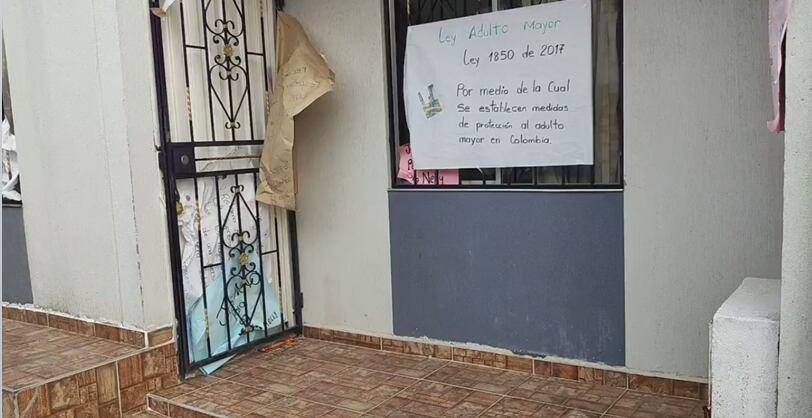 Ley Adulto Mayor
Ley 1850 de 2017
Por medio de la Cual
Se establecen medidas
de protección al adulto
mayor en Colombia.